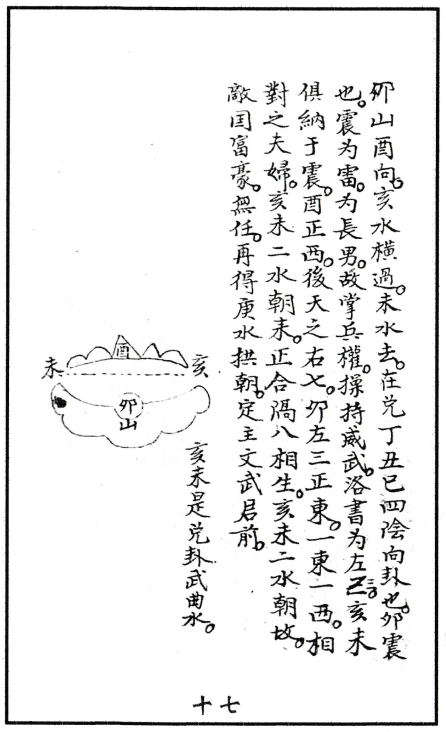 卯山酉向。亥水橫過。未水去。在兑丁丑巳四陰向卦也。卯震
也。震为雷。为長男。故掌兵權。操持威武。洛書为左三。亥未
俱納于震。酉正西。後天之右七。卯左三正東。一東一西。相
對之夫婦。亥未二水朝来。正合隔八相生。亥未二水朝故。
敵囯富豪。無任。再得庚水拱朝。定主文武君前。
亥
酉
未
卯山
亥未是兑卦武曲水。
十七